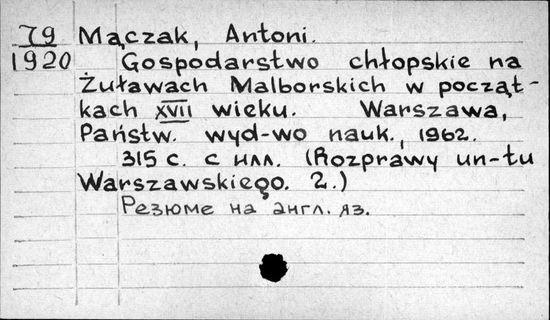 79 Mączak, Antoni.
1920 Gospodarstwo chłopskie na
Żuławach Malborskich w począt-
kach XVII wieku. Warszawa,
Państw. wyd-wo nauk., 1962.
315 с. с илл. (Rozprawy un-tu
Warszawskiego. 2.)
Резюме на англ. яз.